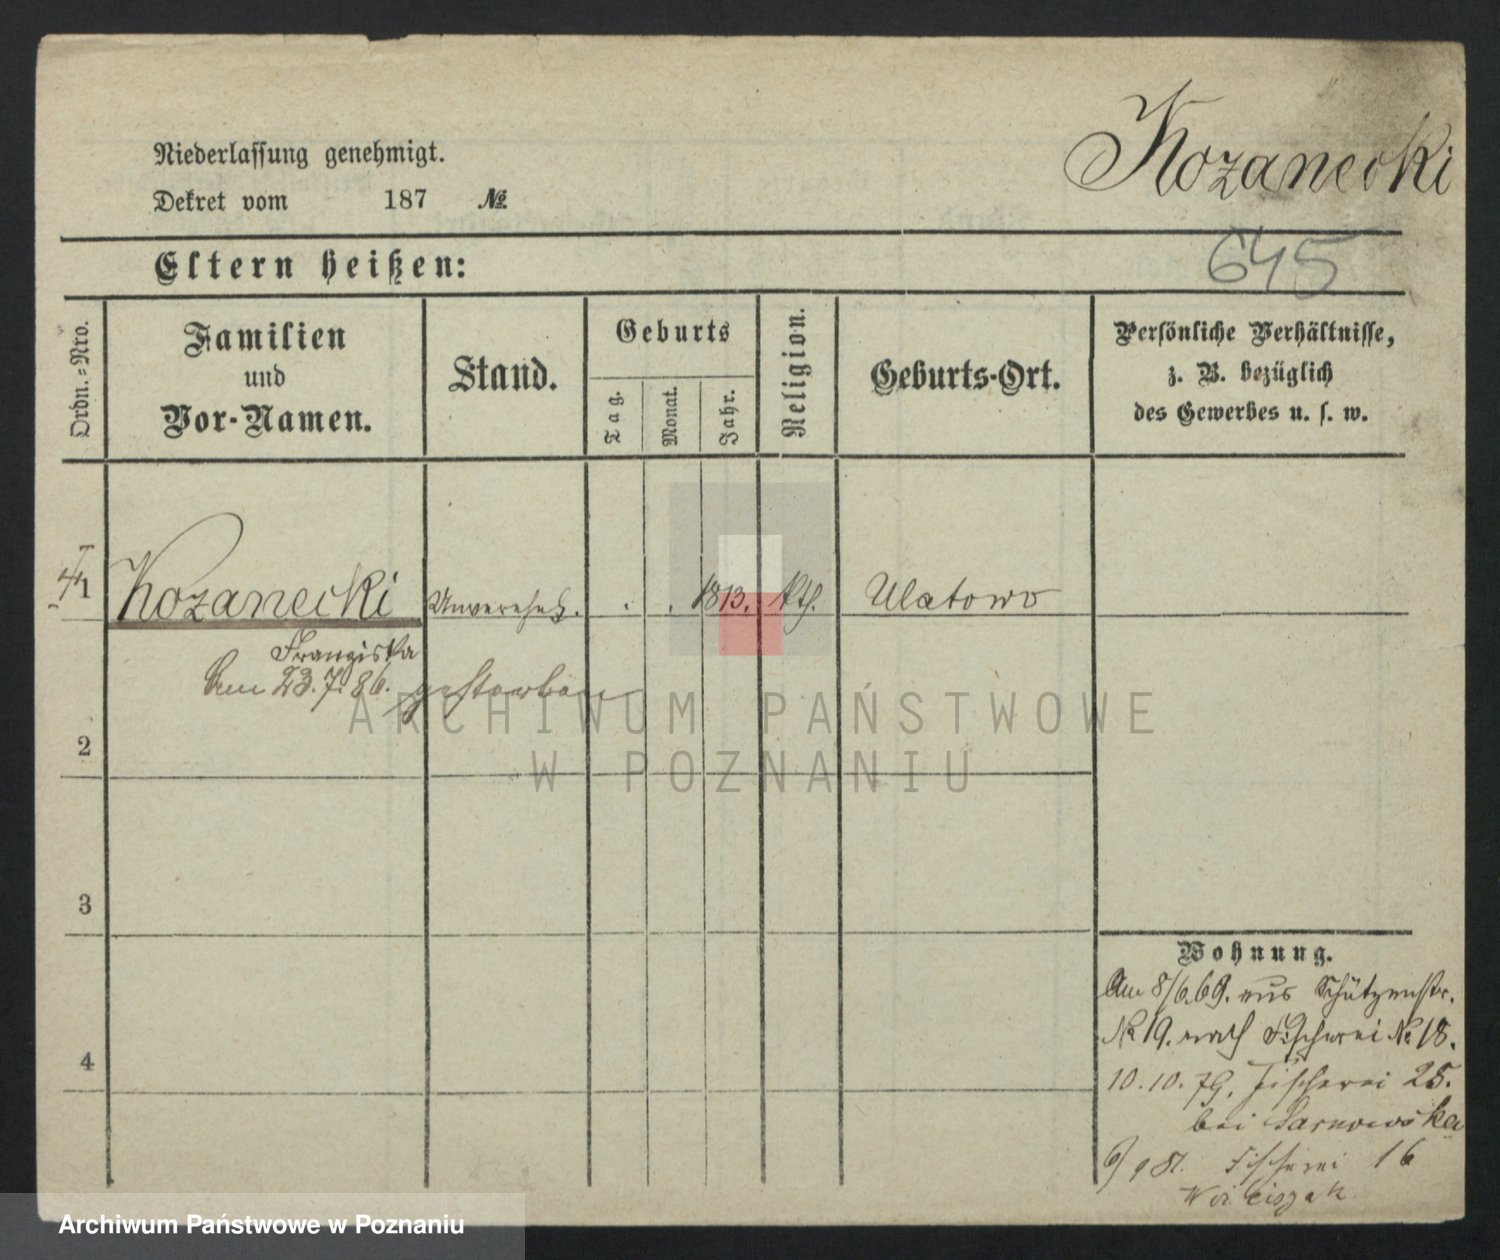 Kozanecki
Niederlassung genehmigt.
Dekret vom 187 №
645
Eltern heißen:
Ordn.=Nro.
Familien
und
Vor-Namen.
Stand.
Geburts
Tag.
Monat.
Jahr.
Religion.
Geburts-Ort.
Persönliche Verhältnisse,
z. B. bezüglich
des Gewerbes u. s. w.
1 Kozanecki Unverehel. . . 1813. kth. Ulatowo
Franziska
Am 23.7.86. gestorben
2
3
4
Wohnung.
Am 8/6.69. aus Schützenstr.
№ 19. nach Fischerei № 18.
10.10.79. Fischerei 25.
bei Sarnowska
Fischerei 16
ARCHIWUM PAŃSTWOWE
W POZNANIU
Archiwum Państwowe w Poznaniu